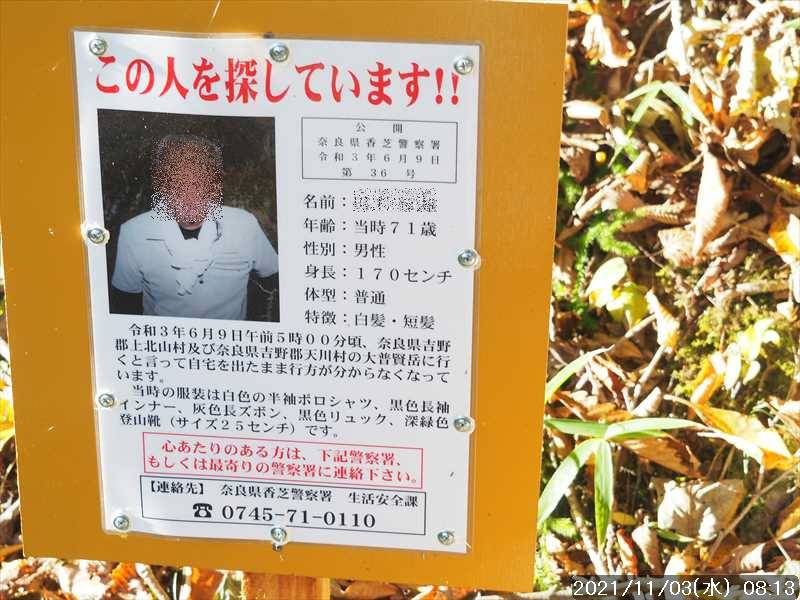 この人を探しています!!
公開
奈良県香芝警察署
令和3年6月9日
第36号
名前：
年齢：当時71歳
性別：男性
身長：170センチ
体型：普通
特徴：白髪・短髪
令和3年6月9日午前5時00分頃、奈良県吉野
郡上北山村及び奈良県吉野郡天川村の大普賢岳に行
くと言って自宅を出たまま行方が分からなくなって
います。
当時の服装は白色の半袖ポロシャツ、黒色長袖
インナー、灰色長ズボン、黒色リュック、深緑色
登山靴（サイズ25センチ）です。
心あたりのある方は、下記警察署、
もしくは最寄りの警察署に連絡下さい。
【連絡先】 奈良県香芝警察署 生活安全課
☎ 0745-71-0110
2021/11/03(水) 08:13